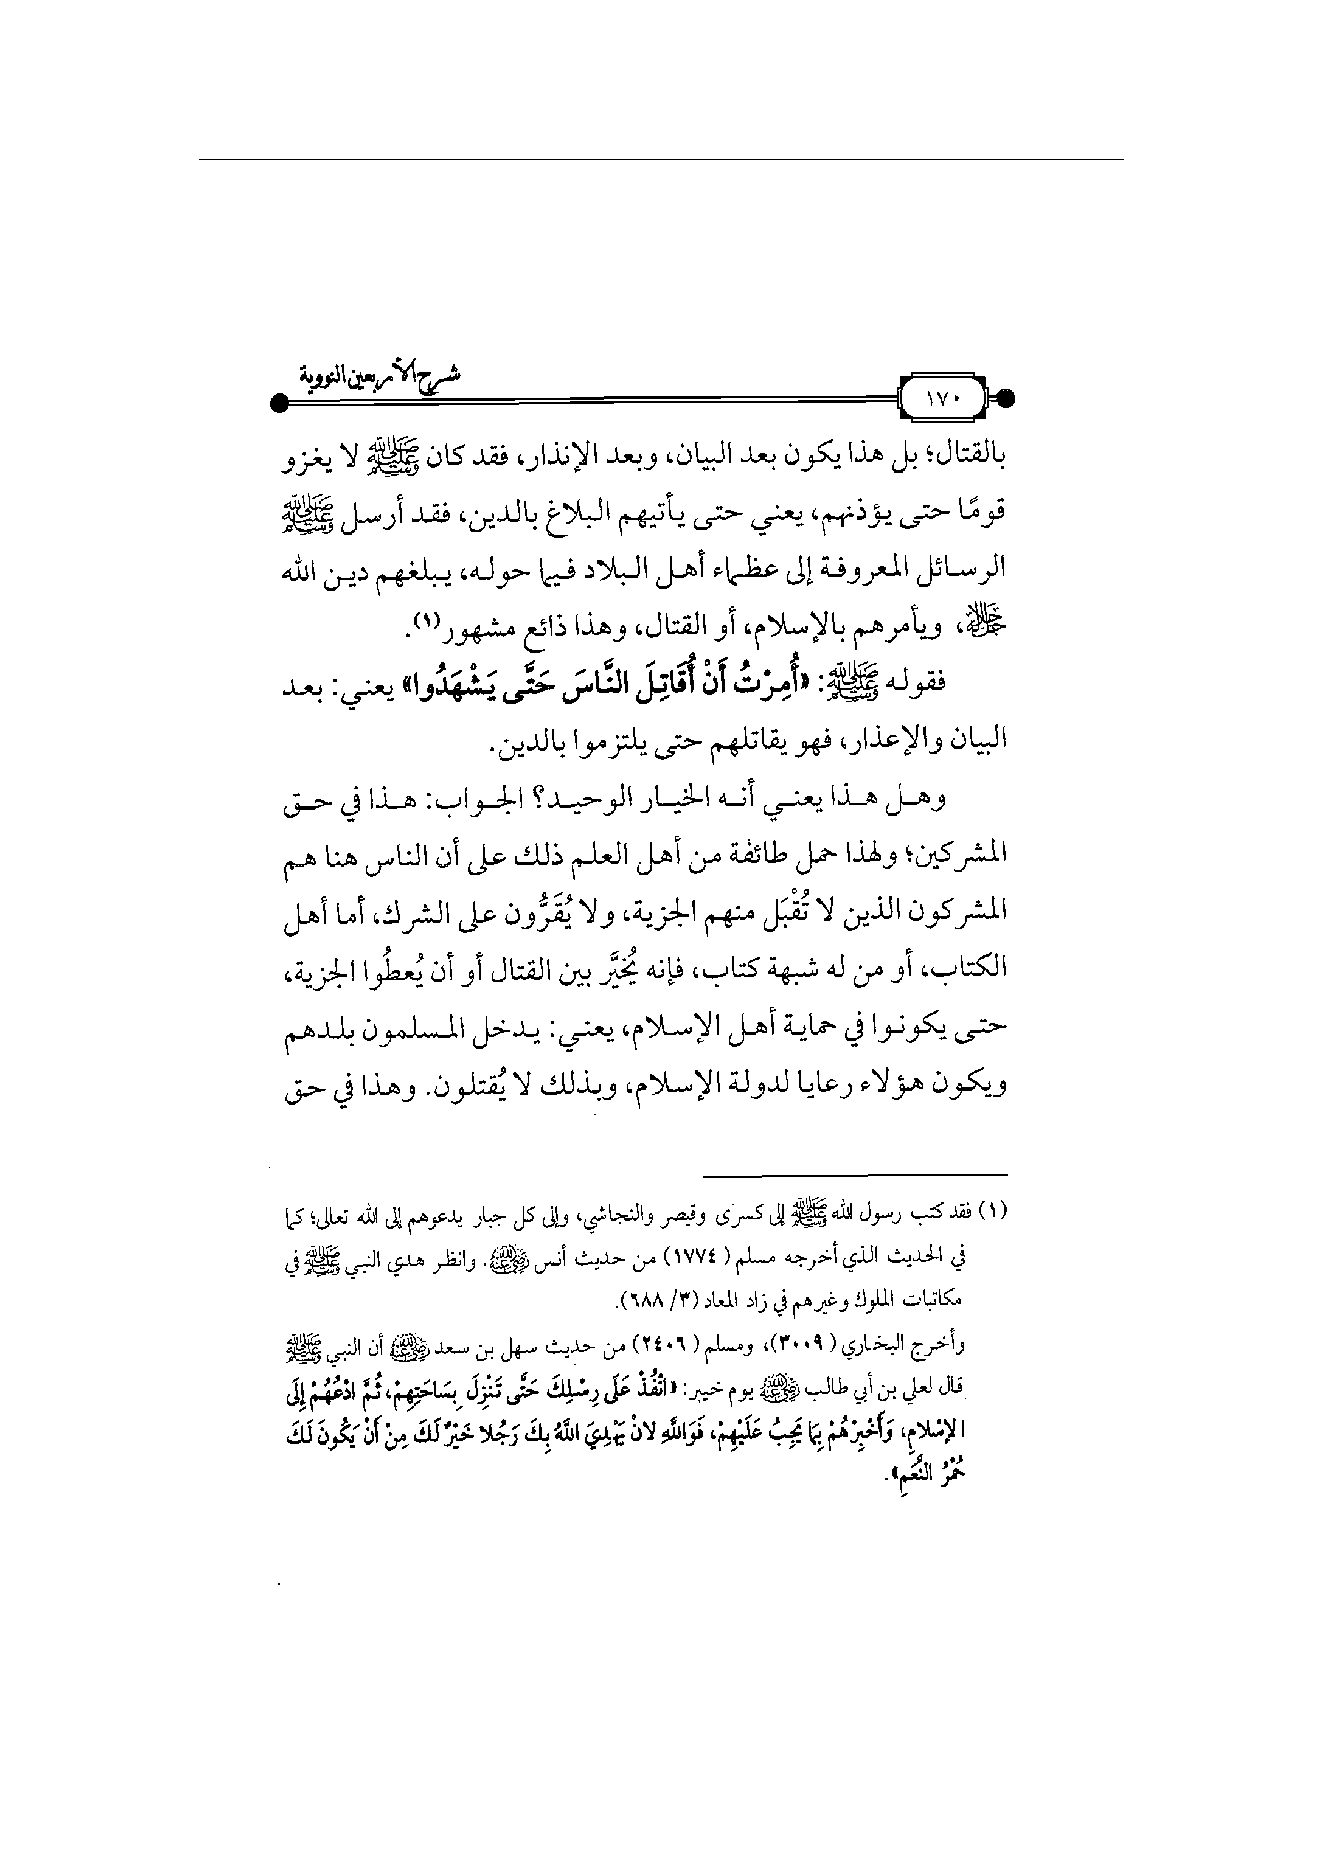 شرح الأربعين النووية
١٧٠
بالقتال؛ بل هذا يكون بعد البيان، وبعد الإنذار، فقد كان ﷺ لا يغزو
قومًا حتى يؤذنهم، يعني حتى يأتيهم البلاغ بالدين، فقد أرسل ﷺ
الرسائل المعروفة إلى عظماء أهل البلاد فيما حوله، يبلغهم دين الله
ﷻ، ويأمرهم بالإسلام، أو القتال، وهذا ذائع مشهور(١).
فقوله ﷺ: «أُمِرْتُ أَنْ أُقَاتِلَ النَّاسَ حَتَّى يَشْهَدُوا» يعني: بعد
البيان والإعذار، فهو يقاتلهم حتى يلتزموا بالدين.
وهل هذا يعني أنه الخيار الوحيد؟ الجواب: هذا في حق
المشركين؛ ولهذا حمل طائفة من أهل العلم ذلك على أن الناس هنا هم
المشركون الذين لا تُقْبَل منهم الجزية، ولا يُقَرُّون على الشرك، أما أهل
الكتاب، أو من له شبهة كتاب، فإنه يُخَيَّر بين القتال أو أن يُعطُوا الجزية،
حتى يكونوا في حماية أهل الإسلام، يعني: يدخل المسلمون بلدهم
ويكون هؤلاء رعايا لدولة الإسلام، وبذلك لا يُقتلون. وهذا في حق
(١) فقد كتب رسول الله ﷺ إلى كسرى وقيصر والنجاشي، وإلى كل جبار يدعوهم إلى الله تعالى؛ كما
في الحديث الذي أخرجه مسلم (١٧٧٤) من حديث أنس رضي الله عنه. وانظر هدي النبي ﷺ في
مكاتبات الملوك وغيرهم في زاد المعاد (٣/ ٦٨٨).
وأخرج البخاري (٣٠٠٩)، ومسلم (٢٤٠٦) من حديث سهل بن سعد رضي الله عنه أن النبي ﷺ
قال لعلي بن أبي طالب رضي الله عنه يوم خيبر: «انْفُذْ عَلَى رِسْلِكَ حَتَّى تَنْزِلَ بِسَاحَتِهِمْ، ثُمَّ ادْعُهُمْ إِلَى
الإسْلامِ، وَأَخْبِرْهُمْ بِمَا يَجِبُ عَلَيْهِمْ، فَوَاللَّهِ لانْ يَهْدِيَ اللَّهُ بِكَ رَجُلا خَيْرٌ لَكَ مِنْ أَنْ يَكُونَ لَكَ
حُمْرُ النَّعَمِ».